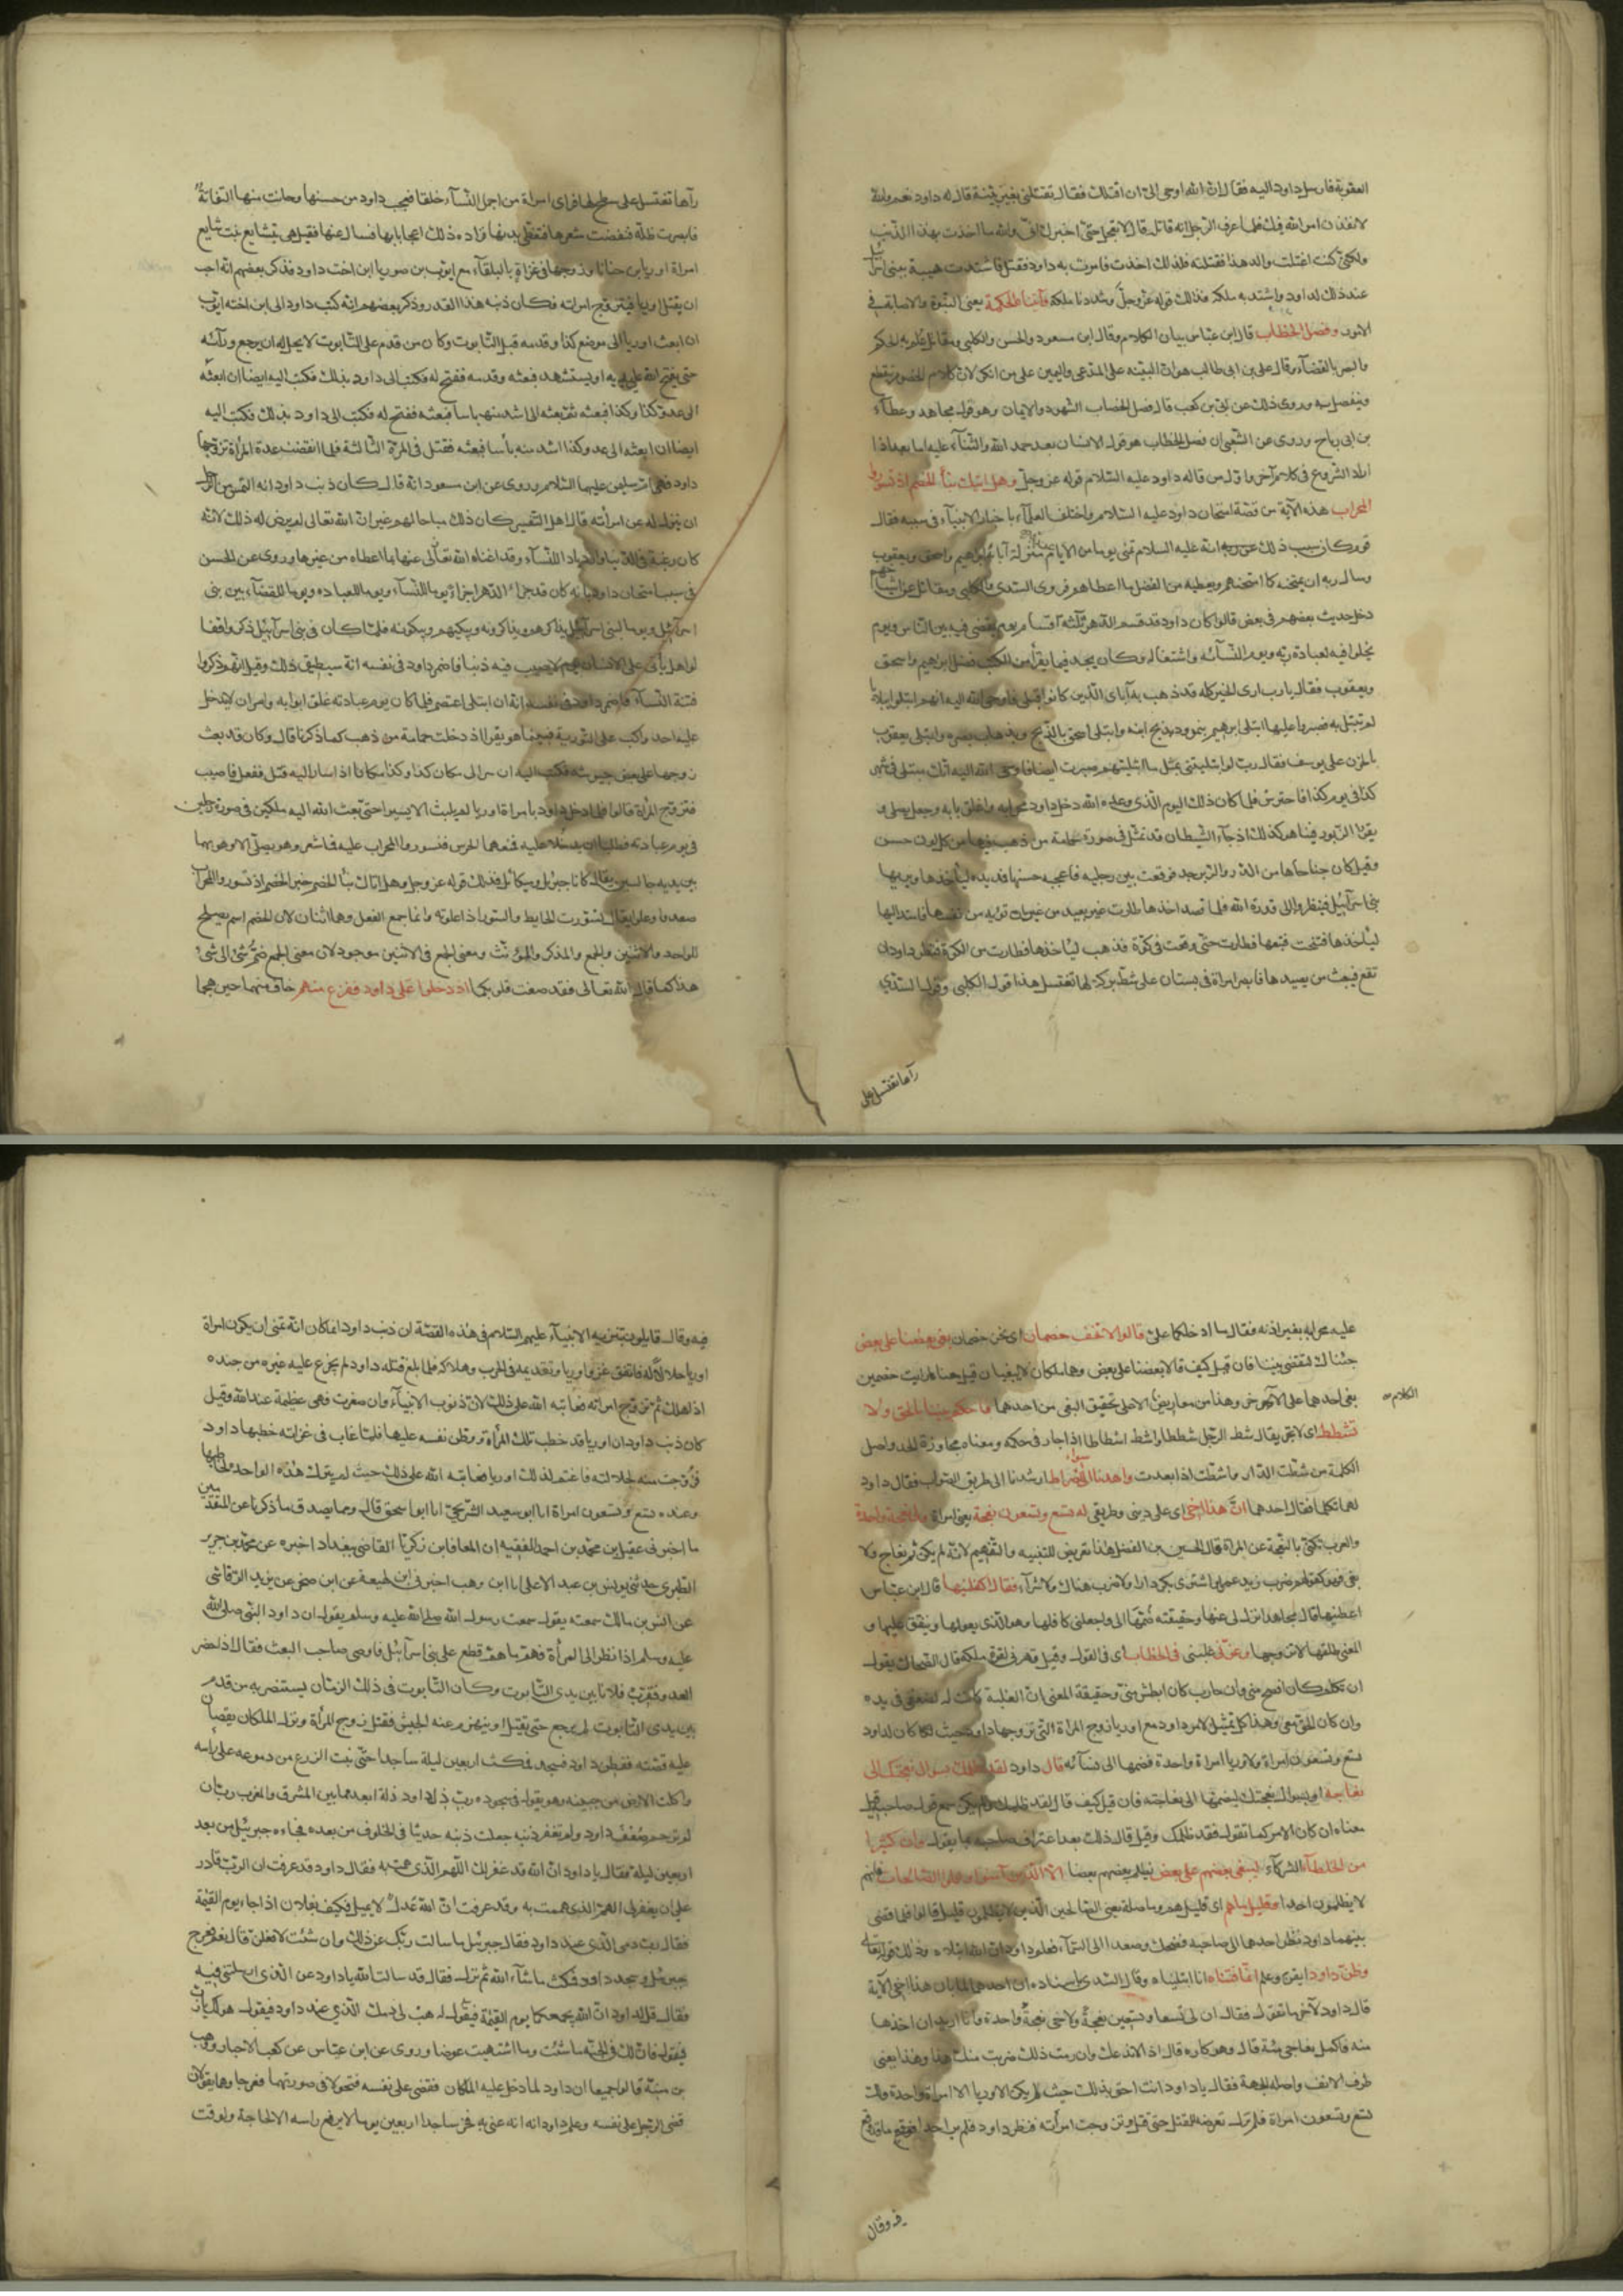 العقوبة فارسل داود اليه فقال ان الله اوحى الى ان اقتلك فقال تقتلنى بغير بينة قال له داود نعم والله
لانفذن امر الله فيك فلما عرف الرجل انه قاتله قال لا تعجل حتى اخبرك انى والله ما اخذت بهذا الذنب
ولكنى كنت اغتلت والد هذا فقتلته فلذلك اخذت فامر به داود فقتل فاشتدت هيبة بنى اسرائيل
عند ذلك لداود واشتد به ملكه فذلك قوله عز وجل وشددنا ملكه وآتيناه الحكمة يعنى النبوة والاصابة فى
الامور وفصل الخطاب قال ابن عباس بيان الكلام وقال ابن مسعود والحسن والكلبى ومقاتل علم الحكم
والبصر بالقضاء وقال على بن ابى طالب هو ان البينة على المدعى واليمين على من انكر لان كلام الخصوم ينقطع
وينفصل به وروى ذلك عن ابى بن كعب قال فصل الخطاب الشهود والايمان وهو قول مجاهد وعطاء
بن ابى رباح وروى عن الشعبى ان فصل الخطاب هو قول الانسان بعد حمد الله والثناء عليه اما بعد اذا
اراد الشروع فى كلام آخر واول من قاله داود عليه السلام قوله عز وجل وهل اتيك نبأ الخصم اذ تسوروا
المحراب هذه الآية من قصة امتحان داود عليه السلام واختلف العلماء باخبار الانبياء فى سببه فقال
قوم كان سبب ذلك انه عليه السلام تمنى يوما من الايام منزلة آبائه ابراهيم واسحق ويعقوب
وسال ربه ان يمتحنه كما امتحنهم ويعطيه من الفضل ما اعطاهم فروى السدى والكلبى ومقاتل عن اشياخهم
دخل حديث بعضهم فى بعض قالوا كان داود قد قسم الدهر ثلثة اقسام يوم يقضى فيه بين الناس ويوم
يخلوا فيه لعبادة ربه ويوم لنسائه واشتغاله وكان يجد فيما يقرأ من الكتب فضل ابراهيم واسحق
ويعقوب فقال يارب ارى الخير كله قد ذهب به آباى الذين كانوا قبلى فاوحى الله اليه انهم ابتلوا ببلايا
لم تبتل به فصبروا عليها ابتلى ابرهيم بنمرود وبذبح ابنه وابتلى اسحق بالذبح وبذهاب بصره وابتلى يعقوب
بالحزن على يوسف فقال رب لو ابتليتنى بمثل ما ابتليتهم صبرت ايضا فاوحى الله اليه انك مبتلى فى شهر
كذا فى يوم كذا فاحترس فلما كان ذلك اليوم الذى وعده الله دخل داود محرابه واغلق بابه وجعل يصلى و
يقرا الزبور فبينا هو كذلك اذ جاء الشيطان قد تمثل فى صورة حمامة من ذهب فيها من كل لون حسن
وقيل كان جناحاها من الدر والزبرجد فوقعت بين رجليه فاعجبه حسنها فمد يده لياخذها ويريها
بنى اسرآئيل فينظروا الى قدرة الله فلما قصد اخذها طارت غير بعيد من غير ان تويسه من نفسها فامتد اليها
ليأخذها فتنحت فتبعها فطارت حتى وقعت فى كوة فذهب ليأخذها فطارت من الكوة فنظر داود ان
تقع فيبعث من يصيدها فابصر امراة فى بستان على شط بركة لها تغتسل هذا قول الكلبى وقال السدى
رآها تغتسل على
رآها تغتسل على سطح لها فراى امراة من اجمل النساء خلقا فعجب داود من حسنها وحانت منها التفاتة
فابصرت ظله فنفضت شعرها فتغطى بدنها فزاده ذلك اعجابا بها فسال عنها فقيل هى تيشايع بنت شايع
امراة اوريا بن حنانا وزوجها فى غزاة بالبلقاء مع ايوب بن صوريا ابن اخت داود فذكر بعضهم انه احب
ان يقتل اوريا فيتزوج امراته فكان ذنبه هذا القدر وذكر بعضهم انه كتب داود الى ابن اخته ايوب
ان ابعث اوريا الى موضع كذا وقدمه قبل التابوت وكان من قدم على التابوت لا يحل له ان يرجع ورآئه
حتى يفتح الله على يديه او يستشهد فبعثه وقدمه ففتح له فكتب الى داود بذلك فكتب اليه ايضا ان ابعثه
الى عدو كذا وكذا فبعثه ثم بعثه الى اشد منها باسا فبعثه ففتح له فكتب الى داود بذلك فكتب اليه
ايضا ان ابعثه الى عدو كذا اشد منه بأسا فبعثه فقتل فى المرة الثالثة فلما انقضت عدة المرأة تزوجها
داود فهى ام سليمن عليهما السلام وروى عن ابن مسعود انه قال كان ذنب داود انه التمس من الرجل
ان ينزل له عن امرأته قال اهل التفسير كان ذلك مباحا لهم غير ان الله تعالى لم يرض له ذلك لانه
كان رغبة فى الدنيا وازدياد النساء وقد اغناه الله تعالى عنها بما اعطاه من غيرها وروى عن الحسن
فى سبب امتحان داود انه كان قد جزا الدهر اجزاء يوما للنساء ويوما للعبادة ويوما للقضاء بين بنى
اسرآئيل ويوما لبنى اسرآئيل يذاكرهم ويذاكرونه ويبكيهم ويبكونه فلما كان فى بنى اسرآئيل ذكروا فقا
لوا هل يأتى على الانسان يوم لا يصيب فيه ذنبا فاضمر داود فى نفسه انه سيطيق ذلك وقيل انهم ذكروا
فتنة النساء فاضمر داود فى نفسه انه ان ابتلى اعتصم فلما كان يوم عبادته غلق ابوابه وامر ان لا يدخل
عليه احد واكب على التورية فبينما هو يقرا اذ دخلت حمامة من ذهب كما ذكرنا قال وكان قد بعث
زوجها على بعض جيوشه فكتب اليه ان سر الى مكان كذا وكذا مكانا اذا سار اليه قتل ففعل فاصيب
فتزوج المرأة قالوا فلما دخل داود بامراة اوريا لم يلبث الا يسيرا حتى بعث الله اليه ملكين فى صورة رجلين
فى يوم عبادته فطلبا ان يدخلا عليه فمنعهما الحرس فتسوروا المحراب عليه فما شعر وهو يصلى الا وهو بهما
بين يديه جالسين يقال كانا جبرئيل وميكائيل فذلك قوله عز وجل وهل اتاك نبأ الخصم خبر الخصم اذ تسوروا المحراب
صعدوا وعلوا يقال تسورت الحايط والسور اذا علوته وانما جمع الفعل وهما اثنان لان الخصم اسم يصلح
للواحد والاثنين والجمع والمذكر والمؤنث ومعنى الجمع فى الاثنين موجود لان معنى الجمع ضم شئ الى شئ
هذا كما قال الله تعالى فقد صغت قلوبكما اذ دخلوا على داود ففزع منهم خاف منهما حين هجما
عليه محرابه بغير اذنه فقال ما ادخلكما على قالوا لا تخف خصمان اى نحن خصمان بغى بعضنا على بعض
جئناك لتقضى بيننا فان قيل كيف قالا بعضنا على بعض وهما ملكان لا يبغيان قيل معناه ارايت خصمين
بغى احدهما على الآخر وهذا من معاريض الكلام لا على تحقيق البغى من احدهما فاحكم بيننا بالحق ولا
تشطط اى لا تجر يقال شط الرجل شططا واشط اشطاطا اذا جار فى حكمه ومعناه مجاوزة الحد واصل
الكلمة من شطت الدار واشطت اذا بعدت واهدنا الى سواء الصراط ارشدنا الى طريق الصواب فقال داود
لهما تكلما فقال احدهما ان هذا اخى اى على دينى وطريقى له تسع وتسعون نعجة يعنى امراة ولى نعجة واحدة
والعرب تكنى بالنعجة عن المراة قال الحسين بن الفضل هذا تعريض للتنبيه والتفهيم لانه لم يكن ثم نعاج ولا
بغى فهو كقولهم ضرب زيد عمرا واشترى بكر دارا ولا ضرب هناك ولا شرآء فقال اكفلنيها قال ابن عباس
اعطنيها قال مجاهد انزل لى عنها وحقيقته ضمها الى واجعلنى كافلها وهو الذى يعولها وينفق عليها و
المعنى طلقها لاتزوجها وعزنى غلبنى فى الخطاب اى فى القول وقيل قهرنى لقوة ملكه قال الضحاك يقول
ان تكلم كان افصح منى وان حارب كان ابطش منى وحقيقة المعنى ان الغلبة كانت له لضعفى فى يده
وان كان الحق معى وهذا كله تمثيل لامر داود مع اوريا زوج المراة التى تزوجها داود حيث كان لداود
تسع وتسعون امراة ولاوريا امراة واحدة فضمها الى نسائه قال داود لقد ظلمك بسؤال نعجتك الى
نعاجه اى بسوال نعجتك ليضمها الى نعاجه فان قيل كيف قال لقد ظلمك ولم يكن سمع قول صاحبه قيل
معناه ان كان الامر كما تقول فقد ظلمك وقيل قال ذلك بعد اعتراف صاحبه بما يقول وان كثيرا
من الخلطاء الشركاء ليبغى بعضهم على بعض يظلم بعضهم بعضا الا الذين آمنوا وعملوا الصالحات فانهم
لا يظلمون احدا وقليل ما هم اى قليل هم وما صلة يعنى الصالحين الذين لا يظلمون قليل قالوا فلما قضى
بينهما داود نظر احدهما الى صاحبه فضحك وصعدا الى السماء فعلم داود ان الله ابتلاه وذلك قوله تعالى
وظن داود ايقن وعلم انما فتناه انا ابتليناه وقال السدى باسناده ان احدهما لما قال ان هذا اخى الآية
قال داود للآخر ما تقول فقال ان لى تسعا وتسعين نعجة ولاخى نعجة واحدة وانا اريد ان اخذها
منه فاكمل نعاجى مئة قال وهو كاره قال اذا لا ندعك وان رمت ذلك ضربت منك هذا وهذا يعنى
طرف الانف واصله الجبهة فقال ياداود انت احق بذلك حيث لم يكن لاوريا الا امراة واحدة ولك
تسع وتسعون امراة فلم تزل تعرضه للقتل حتى قتل وتزوجت امرأته فنظر داود فلم ير احدا فعرف ما قد وقع
الكلام
فيه وقال
فيه وقال قايلون بتنزيه الانبياء عليهم السلام فى هذه القصة ان ذنب داود انما كان انه تمنى ان يكون امراة
اوريا حلالا له فاتفق غزو اوريا وتقدمه فى الحرب وهلاكه فلما بلغ قتله داود لم يجزع عليه غيره من جنده
اذ هلك ثم تزوج امراته فعاتبه الله على ذلك لان ذنوب الانبياء وان صغرت فهى عظيمة عند الله وقيل
كان ذنب داود ان اوريا قد خطب تلك المرأة ووطن نفسه عليها فلما غاب فى غزاته خطبها داود
فزوجت منه لجلالته فاغتم لذلك اوريا فعاتبه الله على ذلك حيث لم يترك هذه الواحدة لخاطبها
وعنده تسع وتسعون امراة انا ابو سعيد الشريحى انا ابو اسحق قال ومما يصدق ما ذكرنا عن المتقدمين
ما اخبرنى عقيل بن محمد بن احمد الفقيه ان المعافا بن زكريا القاضى ببغداد اخبره عن محمد بن جرير
الطبرى حدثنى يونس بن عبد الاعلى انا ابن وهب اخبرنى ابن لهيعة عن ابن صخر عن يزيد الرقاشى
عن انس بن مالك سمعته يقول سمعت رسول الله صلى الله عليه وسلم يقول ان داود النبى صلى الله
عليه وسلم اذا نظر الى المرأة فهم ما هم قطع على بنى اسرآئيل فاوصى صاحب البعث فقال اذا حضر
العدو فقرب فلانا بين يدى التابوت وكان التابوت فى ذلك الزمان يستنصر به من قدم
بين يدى التابوت لم يرجع حتى يقتل او ينهزم عنه الجيش فقتل زوج المرأة ونزل الملكان يقصان
عليه قصته ففطن داود فسجد فمكث اربعين ليلة ساجدا حتى نبت الزرع من دموعه على راسه
واكلت الارض من جبينه وهو يقول فى سجوده رب زل داود زلة ابعد مما بين المشرق والمغرب رب ان
لم ترحم ضعف داود ولم تغفر ذنبه جعلت ذنبه حديثا فى الخلوف من بعده فجاءه جبرئيل من بعد
اربعين ليلة فقال ياداود ان الله قد غفر لك اللهم الذى هممت به فقال داود قد عرفت ان الرب قادر
على ان يغفر لى الهم الذى هممت به وقد عرفت ان الله عدل لا يميل فكيف بفلان اذا جاء يوم القيمة
فقال رب دمى الذى عند داود فقال جبرئيل ما سالت ربك عن ذلك وان شئت لافعلن قال نعم فعرج
جبرئيل وسجد داود فمكث ما شاء الله ثم نزل فقال قد سالت الله ياداود عن الذى ارسلتنى فيه
فقال قل لداود ان الله يجمعكما يوم القيمة فيقول له هب لى دمك الذى عند داود فيقول هو لك يارب
فيقول فان لك فى الجنة ما شئت وما اشتهيت عوضا وروى عن ابن عباس عن كعب الاحبار ووهب
بن منبه قالوا جميعا ان داود لما دخل عليه الملكان فقضى على نفسه فتحولا فى صورتهما فعرجا وهما يقولان
قضى الرجل على نفسه وعلم داود انه انه عنى به فخر ساجدا اربعين يوما لا يرفع راسه الا لحاجة ولوقت